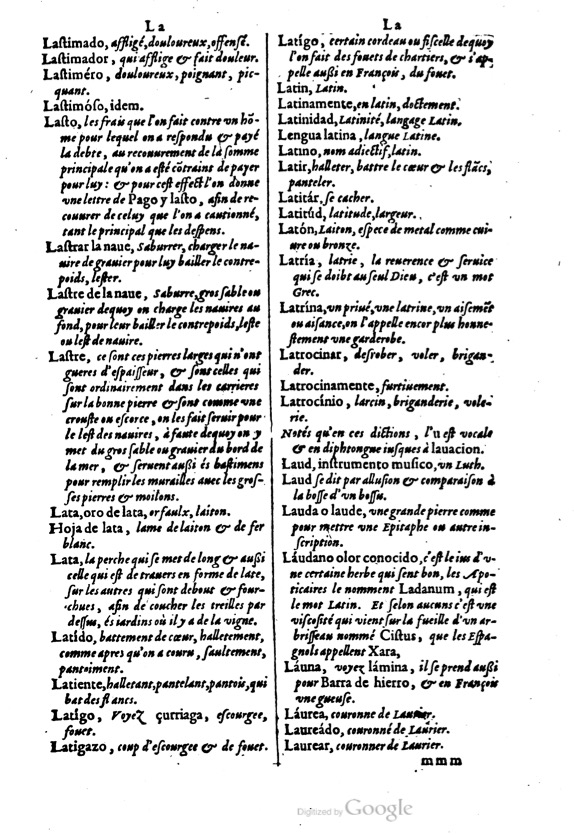 La
Lastimado, affligé, douloureux, offensé.
Lastimador, qui afflige & fait douleur.
Lastiméro, douloureux, poignant, pic-
quant.
Lastimóso, idem.
Lasto, les frais que l'on fait contre vn hõ-
me pour lequel on a respondu & payé
la debte, au recouurement de la somme
principale qu'on a esté cõtraint de payer
pour luy: & pour cest effect l'on donne
vne lettre de Pago y lasto, afin de re-
couurer de celuy que l'on a cautionné,
tant le principal que les despens.
Lastrar la naue, Saburrer, charger le na-
uire de grauier pour luy bailler le contre-
poids, lester.
Lastre de la naue, Saburre, gros sable ou
grauier dequoy on charge les nauires au
fond, pour leur bailler le contrepoids, leste
ou lest de nauire.
Lastre, ce sont ces pierres larges qui n'ont
gueres d'espaisseur, & sont celles qui
sont ordinairement dans les carrieres
sur la bonne pierre & sont comme vne
crouste ou escorce, on les fait seruir pour
le lest des nauires, à faute dequoy on y
met du gros sable ou grauier du bord de
la mer, & seruent außi és bastimens
pour remplir les murailles auec les gros-
ses pierres & moilons.
Lata, oro de lata, orfaulx, laiton.
Hoja de lata, lame de laiton & de fer
blanc.
Lata, la perche qui se met de long & außi
celle qui est de trauers en forme de late,
sur les autres qui sont debout & four-
chues, afin de coucher les treilles par
dessus, és iardins où il y a de la vigne.
Latído, battement de cœur, halletement,
comme apres qu'on a couru, saultement,
pantoiment.
Latiente, halletant, pantelant, pantois, qui
bat des flancs.
Latigo, Voyez çurriaga, escourgee,
fouet.
Latigazo, coup d'escourgee & de fouet.
La
Latígo, certain cordeau ou fiscelle dequoy
l'on fait des fouets de chartiers, & s'ap-
pelle außi en François, du fouet.
Latin, Latin.
Latinamente, en latin, doctement.
Latinidad, Latinité, langage Latin.
Lengua latina, langue Latine.
Latino, nom adiectif, latin.
Latir, halleter, battre le cœur & les flãcs,
panteler.
Latitár, se cacher.
Latitúd, latitude, largeur.
Latón, Laiton, espece de metal comme cui-
ure ou bronze.
Latría, latrie, la reuerence & seruice
qui se doibt au seul Dieu, c'est vn mot
Grec.
Latrina, vn priué, vne latrine, vn aisemẽt
ou aisance, on l'appelle encor plus honne-
stement vne garderobe.
Latrocinar, desrober, voler, brigan-
der.
Latrocinamente, furtiuement.
Latrocínio, larcin, briganderie, vole-
rie.
Notés qu'en ces dictions, l'u est vocale
& en diphtongue iusques à lauacion.
Laud, instrumento musico, vn Luth.
Laud se dit par allusion & comparaison à
la bosse d'vn bossu.
Lauda o laude, vne grande pierre comme
pour mettre vne Epitaphe ou autre in-
scription.
Láudano olor conocido, c'est le ius d'v-
ne certaine herbe qui sent bon, les Apo-
ticaires le nomment Ladanum, qui est
le mot Latin. Et selon aucuns c'est vne
viscosité qui vient sur la fueille d'vn ar-
brisseau nommé Cistus, que les Espa-
gnols appellent Xara,
Láuna, voyez lámina, il se prend außi
pour Barra de hierro, & en François
vne gueuse.
Láurea, couronne de Laurier.
Laureádo, couronné de Laurier.
Laurear, couronner de Laurier.
mmm
Digitized by Google